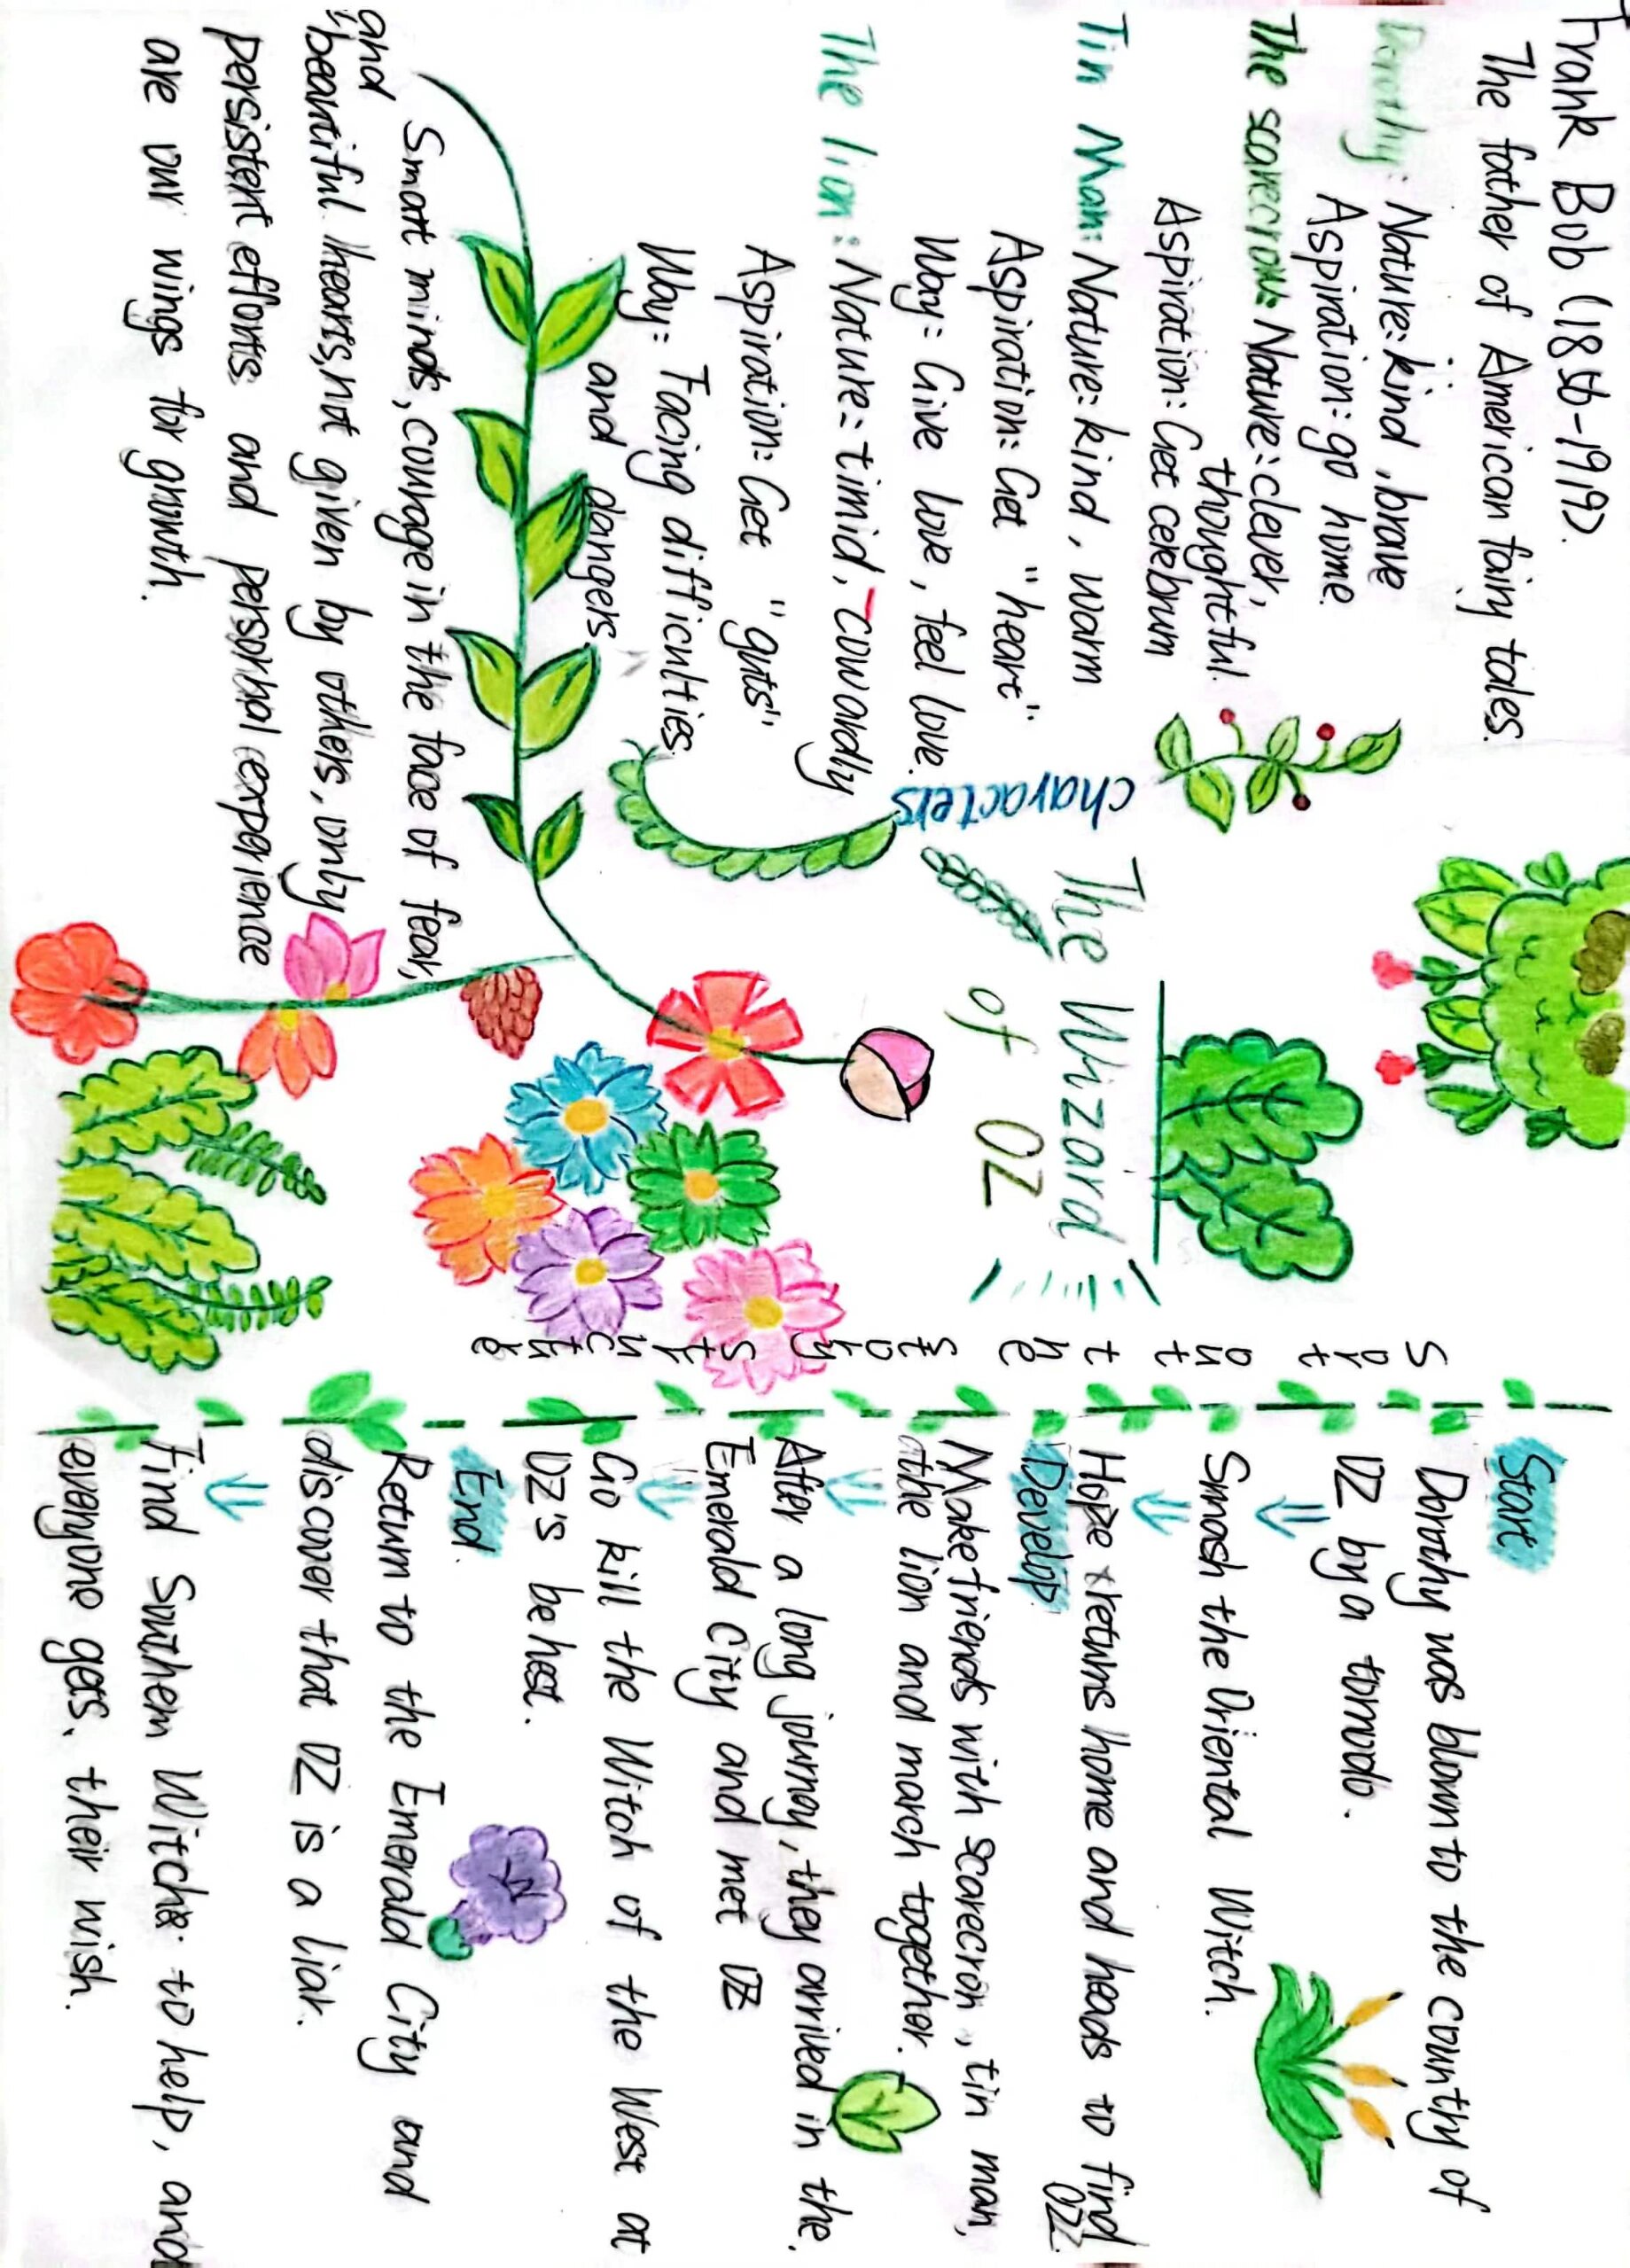 Frank Bob (1856-1919).
The father of American fairy tales.
Dorothy: Nature: kind, brave
Aspiration: go home.
The scarecrow: Nature: clever,
thoughtful.
Aspiration: Get cerebrum
Tin Man: Nature: kind, warm
Aspiration: Get "heart"
Way: Give love, feel love.
The lion: Nature: timid, cowardly
Aspiration: Get "guts".
Way: Facing difficulties
and dangers.
characters
Smart minds, courage in the face of fear,
and
"beautiful hearts, not given by others, only
persistent efforts and personal experience
are our wings for growth.
The Wizard
of OZ
Sort out the story structure
Start
Dorothy was blown to the county of
OZ by a tornado.
⇓
Smash the Oriental Witch.
⇓
Hope returns home and heads to find
OZ.
Develop
Make friends with scarecrow, tin man,
the lion and march together.
⇓
After a long journey, they arrived in the
Emerald City and met OZ
⇓
Go kill the Witch of the West at
OZ's behest.
End.
Return to the Emerald City and
discover that OZ is a liar.
⇓
Find Southern Witch to help, and
everyone gets their wish.